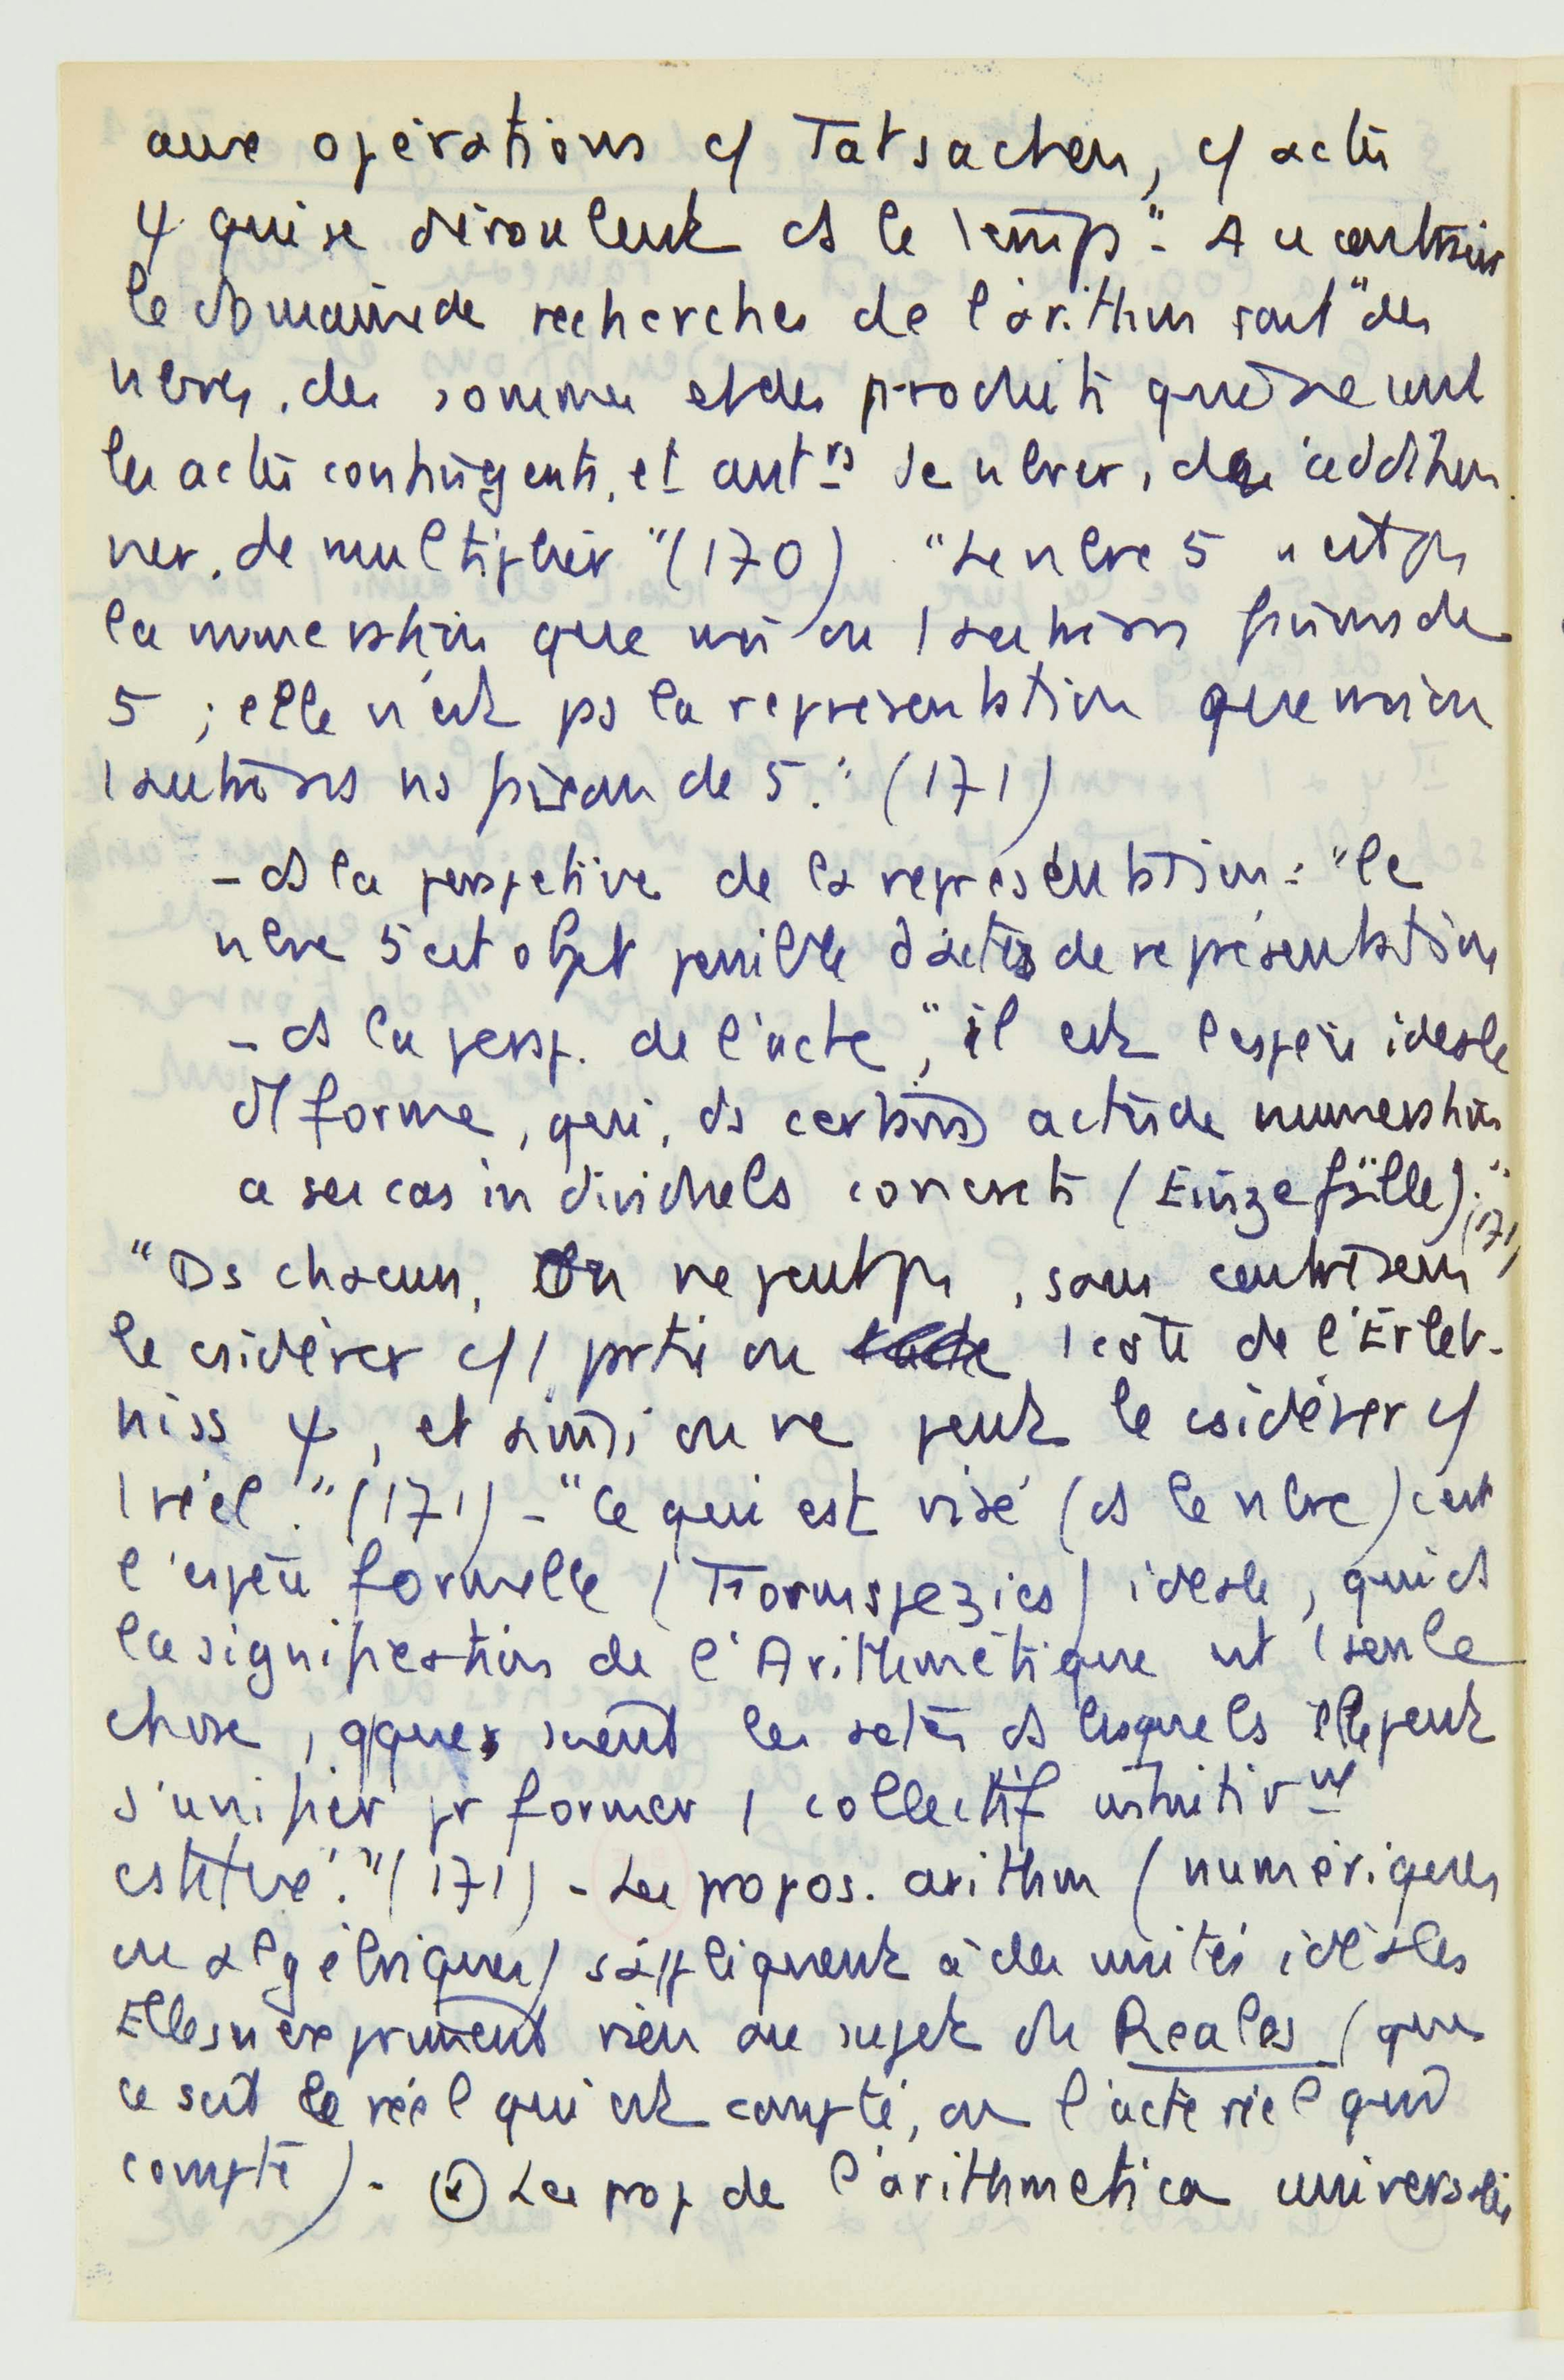 aux opérations c/ Tatsachen, c/ actes
ψ qui se déroulent ds le temps" - Au contraire
le domaine de recherches de l'arithm sont "des
nbres, des sommes et des produits
les actes contingents, et de nbrer, d'addition
ner, de multiplier" (170) "Le nbre 5 n'est ps
la numération que moi ou 1 autre ns faisons de
5 ; elle n'est ps la représentation que moi ou
1 autre ns faisons de 5." (171)
- ds la perspective de la représentation : "le
nbre 5 est objet possible d'actes de représentation
- ds la persp. de l'acte, "il est l'espèce idéale
d'1 forme, qui, ds certains actes de numération
a ses cas individuels concrets (Einzefälle)." (171)
"Ds chacun, on ne peut ps, sans contresens
le csidérer c/ 1 partie ou 1 côté de l'Erleb-
niss ψ, et ainsi on ne peut le csidérer c/
1 réel." (171) - "Ce qui est visé (ds le nbre) c'est
l'espèce formelle (Formspezies) idéale, qui ds
la signification de l'Arithmétique est 1 seule
chose, qques soient les actes ds lesquels elle peut
s'unifier pr former 1 collectif intuitivmt
cstitué." (171) - Les propos. arithm (numériques
ou algébriques) s'appliquent à des unités idéales
Elles n'expriment rien au sujet du Reales (que
ce soit le réel qui est compté, ou l'acte réel qui
compte) - Les prop de l'arithmetica universalis